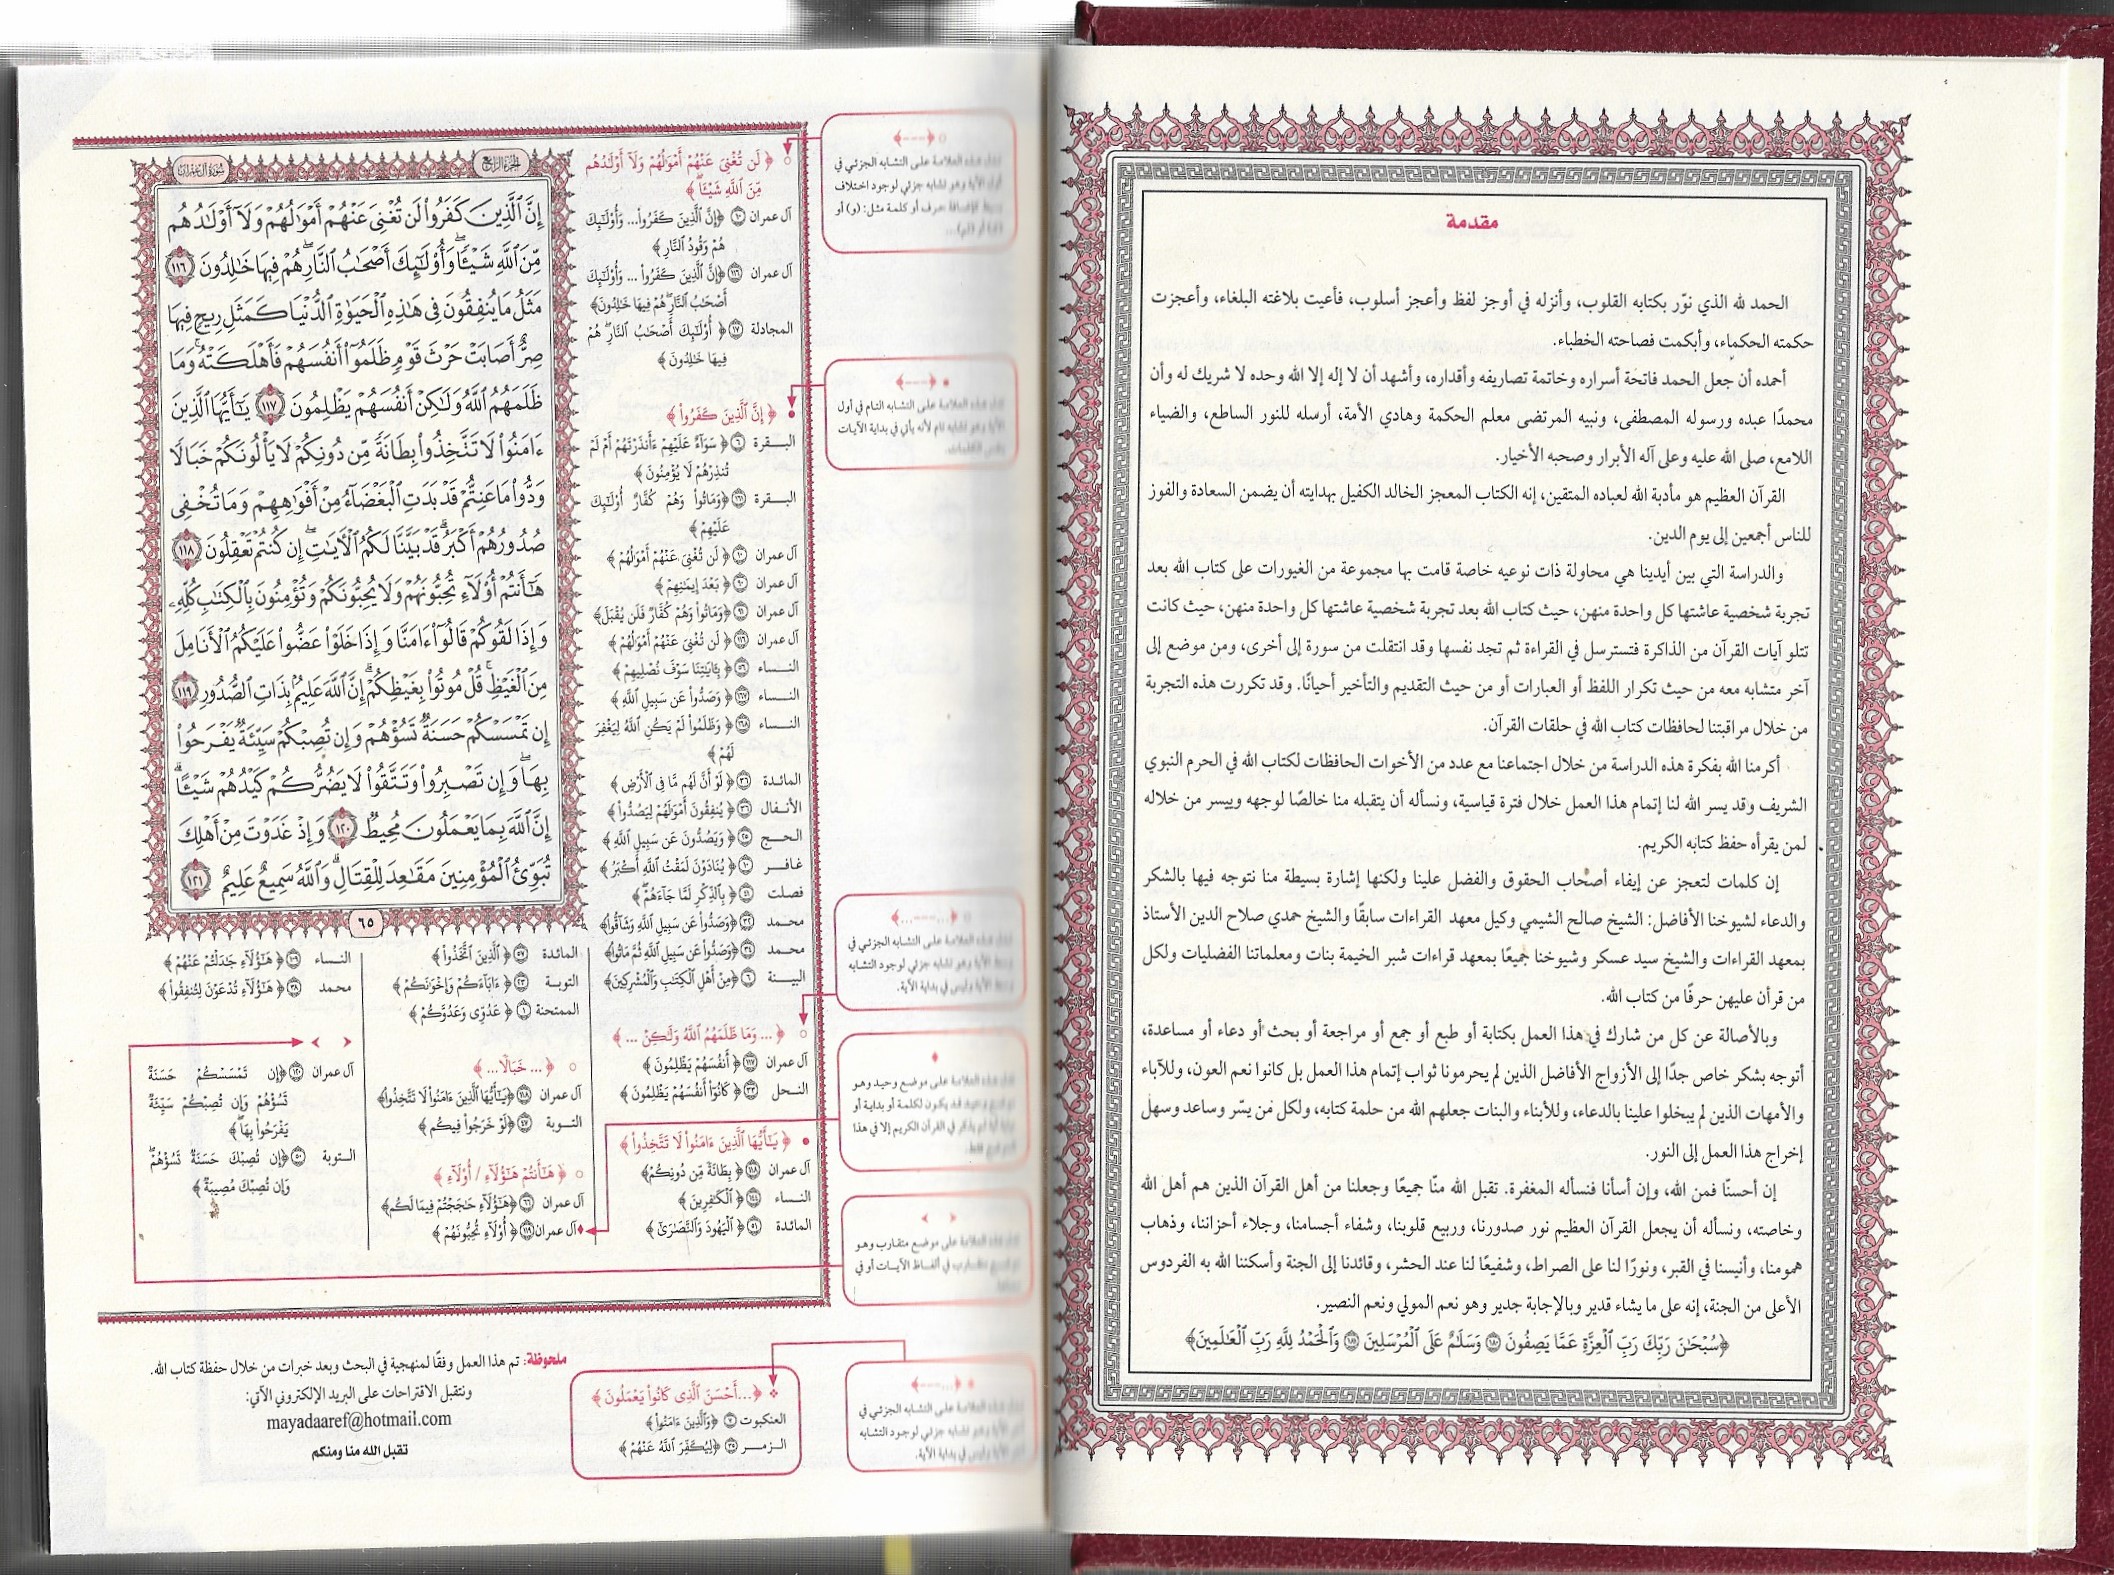 مقدمة
الحمد لله الذي نوّر بكتابه القلوب، وأنزله في أوجز لفظ وأعجز أسلوب، فأعيت بلاغته البلغاء، وأعجزت
حكمته الحكماء، وأبكمت فصاحته الخطباء.
أحمده أن جعل الحمد فاتحة أسراره وخاتمة تصاريفه وأقداره، وأشهد أن لا إله إلا الله وحده لا شريك له وأن
محمدًا عبده ورسوله المصطفى، ونبيه المرتضى معلم الحكمة وهادي الأمة، أرسله للنور الساطع، والضياء
اللامع، صلى الله عليه وعلى آله الأبرار وصحبه الأخيار.
القرآن العظيم هو مأدبة الله لعباده المتقين، إنه الكتاب المعجز الخالد الكفيل بهدايته أن يضمن السعادة والفوز
للناس أجمعين إلى يوم الدين.
والدراسة التي بين أيدينا هي محاولة ذات نوعيه خاصة قامت بها مجموعة من الغيورات على كتاب الله بعد
تجربة شخصية عاشتها كل واحدة منهن، حيث كتاب الله بعد تجربة شخصية عاشتها كل واحدة منهن، حيث كانت
تتلو آيات القرآن من الذاكرة فتسترسل في القراءة ثم تجد نفسها وقد انتقلت من سورة إلى أخرى، ومن موضع إلى
آخر متشابه معه من حيث تكرار اللفظ أو العبارات أو من حيث التقديم والتأخير أحيانًا. وقد تكررت هذه التجربة
من خلال مراقبتنا لحافظات كتاب الله في حلقات القرآن.
أكرمنا الله بفكرة هذه الدراسة من خلال اجتماعنا مع عدد من الأخوات الحافظات لكتاب الله في الحرم النبوي
الشريف وقد يسر الله لنا إتمام هذا العمل خلال فترة قياسية، ونسأله أن يتقبله منا خالصًا لوجهه وييسر من خلاله
لمن يقرأه حفظ كتابه الكريم.
إن كلمات لتعجز عن إيفاء أصحاب الحقوق والفضل علينا ولكنها إشارة بسيطة منا نتوجه فيها بالشكر
والدعاء لشيوخنا الأفاضل: الشيخ صالح الشيمي وكيل معهد القراءات سابقًا والشيخ حمدي صلاح الدين الأستاذ
بمعهد القراءات والشيخ سيد عسكر وشيوخنا جميعًا بمعهد قراءات شبر الخيمة بنات ومعلماتنا الفضليات ولكل
من قرأن عليهن حرفًا من كتاب الله.
وبالأصالة عن كل من شارك في هذا العمل بكتابة أو طبع أو جمع أو مراجعة أو بحث أو دعاء أو مساعدة،
أتوجه بشكر خاص جدًا إلى الأزواج الأفاضل الذين لم يحرمونا ثواب إتمام هذا العمل بل كانوا نعم العون، وللآباء
والأمهات الذين لم يبخلوا علينا بالدعاء، وللأبناء والبنات جعلهم الله من حلمة كتابه، ولكل من يسّر وساعد وسهل
إخراج هذا العمل إلى النور.
إن أحسنًا فمن الله، وإن أسأنا فنسأله المغفرة. تقبل الله منّا جميعًا وجعلنا من أهل القرآن الذين هم أهل الله
وخاصته، ونسأله أن يجعل القرآن العظيم نور صدورنا، وربيع قلوبنا، وشفاء أجسامنا، وجلاء أحزاننا، وذهاب
همومنا، وأنيسنا في القبر، ونورًا لنا على الصراط، وشفيعًا لنا عند الحشر، وقائدنا إلى الجنة وأسكننا الله به الفردوس
الأعلى من الجنة، إنه على ما يشاء قدير وبالإجابة جدير وهو نعم المولي ونعم النصير.
﴿سُبْحَٰنَ رَبِّكَ رَبِّ ٱلْعِزَّةِ عَمَّا يَصِفُونَ ١٨٠ وَسَلَٰمٌ عَلَى ٱلْمُرْسَلِينَ ١٨١ وَٱلْحَمْدُ لِلَّهِ رَبِّ ٱلْعَٰلَمِينَ﴾
﴿---﴾
تدل هذه العلامة على التشابه الجزئي في
أول الآية وهو تشابه جزئي لوجود اختلاف
حرف أو كلمة مثل: (و) أو
﴿---﴾
تدل هذه العلامة على التشابه التام في أول
الآية وهو تشابه تام لأنه يأتي في بداية الآيات
﴿...---﴾
تدل هذه العلامة على التشابه الجزئي في
وسط الآية وهو تشابه جزئي لوجود التشابه
وسط الآية وليس في بداية الآية.
تدل هذه العلامة على موضع وحيد وهو
موضع وحيد قد يكون لكلمة أو بداية أو
نهاية آية لم يذكر في القرآن الكريم إلا في هذا
الموضع فقط.
تدل هذه العلامة على موضع متقارب وهو
في ألفاظ الآيات أو في
﴿...---﴾
تدل هذه العلامة على التشابه الجزئي في
آخر الآية وهو تشابه جزئي لوجود التشابه
آخر الآية وليس في بداية الآية.
﴿ لَن تُغْنِىَ عَنْهُمْ أَمْوَٰلُهُمْ وَلَآ أَوْلَٰدُهُم
مِّنَ ٱللَّهِ شَيْـًٔا ﴾
آل عمران ١٠ ﴿إِنَّ ٱلَّذِينَ كَفَرُوا۟... وَأُو۟لَٰٓئِكَ
هُمْ وَقُودُ ٱلنَّارِ ﴾
آل عمران ١١٦ ﴿إِنَّ ٱلَّذِينَ كَفَرُوا۟ ... وَأُو۟لَٰٓئِكَ
أَصْحَٰبُ ٱلنَّارِ هُمْ فِيهَا خَٰلِدُونَ﴾
المجادلة ١٧ ﴿ أُو۟لَٰٓئِكَ أَصْحَٰبُ ٱلنَّارِ هُمْ
فِيهَا خَٰلِدُونَ ﴾
﴿ إِنَّ ٱلَّذِينَ كَفَرُوا۟ ﴾
البـقـرة ٦ ﴿ سَوَآءٌ عَلَيْهِمْ ءَأَنذَرْتَهُمْ أَمْ لَمْ
تُنذِرْهُمْ لَا يُؤْمِنُونَ ﴾
البقرة ١٦١ ﴿وَمَاتُوا۟ وَهُمْ كُفَّارٌ أُو۟لَٰٓئِكَ
عَلَيْهِمْ ﴾
آل عمران ١٠ ﴿ لَن تُغْنِىَ عَنْهُمْ أَمْوَٰلُهُمْ ﴾
آل عمران ٩٠ ﴿ بَعْدَ إِيمَٰنِهِمْ ﴾
آل عمران ٩١ ﴿وَمَاتُوا۟ وَهُمْ كُفَّارٌ فَلَن يُقْبَلَ﴾
آل عمران ١١٦ ﴿ لَن تُغْنِىَ عَنْهُمْ أَمْوَٰلُهُمْ ﴾
النـسـاء ٥٦ ﴿ بِـَٔايَٰتِنَا سَوْفَ نُصْلِيهِمْ ﴾
النـسـاء ١٦٧ ﴿ وَصَدُّوا۟ عَن سَبِيلِ ٱللَّهِ ﴾
النـسـاء ١٦٨ ﴿ وَظَلَمُوا۟ لَمْ يَكُنِ ٱللَّهُ لِيَغْفِرَ
لَهُمْ ﴾
المائدة ٣٦ ﴿ لَوْ أَنَّ لَهُم مَّا فِى ٱلْأَرْضِ ﴾
الأنـفـال ٣٦ ﴿ يُنفِقُونَ أَمْوَٰلَهُمْ لِيَصُدُّوا۟ ﴾
الـحـج ٢٥ ﴿ وَيَصُدُّونَ عَن سَبِيلِ ٱللَّهِ ﴾
غـافـر ١٠ ﴿ يُنَادَوْنَ لَمَقْتُ ٱللَّهِ أَكْبَرُ ﴾
فصلت ٤١ ﴿ بِٱلذِّكْرِ لَمَّا جَآءَهُمْ ﴾
محمـد ٣٢ ﴿وَصَدُّوا۟ عَن سَبِيلِ ٱللَّهِ وَشَآقُّوا۟﴾
محمـد ٣٤ ﴿وَصَدُّوا۟ عَن سَبِيلِ ٱللَّهِ ثُمَّ مَاتُوا۟﴾
البينة ٦ ﴿مِنْ أَهْلِ ٱلْكِتَٰبِ وَٱلْمُشْرِكِينَ﴾
﴿ ... وَمَا ظَلَمَهُمُ ٱللَّهُ وَلَٰكِنْ ... ﴾
آل عمران ١١٧ ﴿ أَنفُسَهُمْ يَظْلِمُونَ ﴾
النحل ٣٣ ﴿ كَانُوٓا۟ أَنفُسَهُمْ يَظْلِمُونَ ﴾
﴿ يَٰٓأَيُّهَا ٱلَّذِينَ ءَامَنُوا۟ لَا تَتَّخِذُوا۟ ﴾
آل عمران ١١٨ ﴿ بِطَانَةً مِّن دُونِكُمْ ﴾
النساء ١٤٤ ﴿ ٱلْكَٰفِرِينَ ﴾
المائدة ٥١ ﴿ ٱلْيَهُودَ وَٱلنَّصَٰرَىٰٓ ﴾
الجزء الرابع
سورة آل عمران
إِنَّ ٱلَّذِينَ كَفَرُوا۟ لَن تُغْنِىَ عَنْهُمْ أَمْوَٰلُهُمْ وَلَآ أَوْلَٰدُهُم
مِّنَ ٱللَّهِ شَيْـًٔا ۖ وَأُو۟لَٰٓئِكَ أَصْحَٰبُ ٱلنَّارِ ۚ هُمْ فِيهَا خَٰلِدُونَ ١١٦
مَثَلُ مَا يُنفِقُونَ فِى هَٰذِهِ ٱلْحَيَوٰةِ ٱلدُّنْيَا كَمَثَلِ رِيحٍ فِيهَا
صِرٌّ أَصَابَتْ حَرْثَ قَوْمٍ ظَلَمُوٓا۟ أَنفُسَهُمْ فَأَهْلَكَتْهُ ۚ وَمَا
ظَلَمَهُمُ ٱللَّهُ وَلَٰكِنْ أَنفُسَهُمْ يَظْلِمُونَ ١١٧ يَٰٓأَيُّهَا ٱلَّذِينَ
ءَامَنُوا۟ لَا تَتَّخِذُوا۟ بِطَانَةً مِّن دُونِكُمْ لَا يَأْلُونَكُمْ خَبَالًا
وَدُّوا۟ مَا عَنِتُّمْ قَدْ بَدَتِ ٱلْبَغْضَآءُ مِنْ أَفْوَٰهِهِمْ وَمَا تُخْفِى
صُدُورُهُمْ أَكْبَرُ ۚ قَدْ بَيَّنَّا لَكُمُ ٱلْـَٔايَٰتِ ۖ إِن كُنتُمْ تَعْقِلُونَ ١١٨
هَٰٓأَنتُمْ أُو۟لَآءِ تُحِبُّونَهُمْ وَلَا يُحِبُّونَكُمْ وَتُؤْمِنُونَ بِٱلْكِتَٰبِ كُلِّهِۦ
وَإِذَا لَقُوكُمْ قَالُوٓا۟ ءَامَنَّا وَإِذَا خَلَوْا۟ عَضُّوا۟ عَلَيْكُمُ ٱلْأَنَامِلَ
مِنَ ٱلْغَيْظِ ۚ قُلْ مُوتُوا۟ بِغَيْظِكُمْ ۗ إِنَّ ٱللَّهَ عَلِيمٌۢ بِذَاتِ ٱلصُّدُورِ ١١٩
إِن تَمْسَسْكُمْ حَسَنَةٌ تَسُؤْهُمْ وَإِن تُصِبْكُمْ سَيِّئَةٌ يَفْرَحُوا۟
بِهَا ۖ وَإِن تَصْبِرُوا۟ وَتَتَّقُوا۟ لَا يَضُرُّكُمْ كَيْدُهُمْ شَيْـًٔا ۗ
إِنَّ ٱللَّهَ بِمَا يَعْمَلُونَ مُحِيطٌ ١٢٠ وَإِذْ غَدَوْتَ مِنْ أَهْلِكَ
تُبَوِّئُ ٱلْمُؤْمِنِينَ مَقَٰعِدَ لِلْقِتَالِ ۗ وَٱللَّهُ سَمِيعٌ عَلِيمٌ ١٢١
٦٥
المائدة ٥٧ ﴿ ٱلَّذِينَ ٱتَّخَذُوا۟ ﴾
التوبـة ٢٣ ﴿ ءَابَآءَكُمْ وَإِخْوَٰنَكُمْ ﴾
الممتحنة ١ ﴿ عَدُوِّى وَعَدُوَّكُمْ ﴾
﴿ ... خَبَالًا... ﴾
آل عمران ١١٨ ﴿يَٰٓأَيُّهَا ٱلَّذِينَ ءَامَنُوا۟ لَا تَتَّخِذُوا۟﴾
التـوبة ٤٧ ﴿لَوْ خَرَجُوا۟ فِيكُم ﴾
﴿ هَٰٓأَنتُمْ هَٰٓؤُلَآءِ / أُو۟لَآءِ ﴾
آل عمران ٦٦ ﴿هَٰٓؤُلَآءِ حَٰجَجْتُمْ فِيمَا لَكُم﴾
آل عمران ١١٩ ﴿ أُو۟لَآءِ تُحِبُّونَهُمْ ﴾
النـساء ١٠٩ ﴿ هَٰٓؤُلَآءِ جَٰدَلْتُمْ عَنْهُمْ ﴾
محمد ٣٨ ﴿ هَٰٓؤُلَآءِ تُدْعَوْنَ لِتُنفِقُوا۟ ﴾
آل عمران ١٢٠ ﴿إِن تَمْسَسْكُمْ حَسَنَةٌ
تَسُؤْهُمْ وَإِن تُصِبْكُمْ سَيِّئَةٌ
يَفْرَحُوا۟ بِهَا ﴾
الـتوبة ٥٠ ﴿إِن تُصِبْكَ حَسَنَةٌ تَسُؤْهُمْ
وَإِن تُصِبْكَ مُصِيبَةٌ ﴾
﴿ ...أَحْسَنَ ٱلَّذِى كَانُوا۟ يَعْمَلُونَ ﴾
العنكبوت ٧ ﴿ وَٱلَّذِينَ ءَامَنُوا۟ ﴾
الـزمـر ٣٥ ﴿ لِيُكَفِّرَ ٱللَّهُ عَنْهُمْ ﴾
ملحوظة: تم هذا العمل وفقًا لمنهجية في البحث وبعد خبرات من خلال حفظة كتاب الله.
ونتقبل الاقتراحات على البريد الإلكتروني الآتي:
mayadaaref@hotmail.com
تقبل الله منا ومنكم